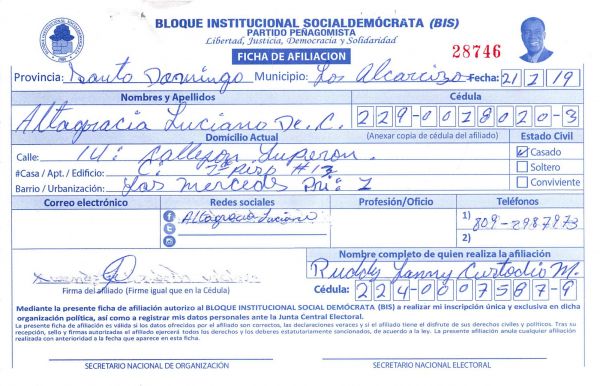 BLOQUE INSTITUCIONAL SOCIALDEMÓCRATA (BIS)
PARTIDO PEÑAGOMISTA
Libertad, Justicia, Democracia y Solidaridad
FICHA DE AFILIACION
28746
Provincia: Santo Domingo Municipio: Los Alcarrizos Fecha: 21/2/19
Nombres y Apellidos Cédula
Altagracia Luciano De. C. 229-0018020-3
Domicilio Actual (Anexar copia de cédula del afiliado) Estado Civil
Calle: 14: Callejon Luperon. Casado
#Casa / Apt. / Edificio: C: #13 Soltero
Barrio / Urbanización: Las mercedes Conviviente
Correo electrónico Redes sociales Profesión/Oficio Teléfonos
Altagracia Luciano 1) 809-2987973
2)
Nombre completo de quien realiza la afiliación
Ruddy Yanny Custodio M.
Firma del afiliado (Firme igual que en la Cédula) Cédula: 224-0007587-9
Mediante la presente ficha de afiliación autorizo al BLOQUE INSTITUCIONAL SOCIAL DEMÓCRATA (BIS) a realizar mi inscripción única y exclusiva en dicha
organización política, así como a registrar mis datos personales ante la Junta Central Electoral.
La presente ficha de afiliación es válida si los datos ofrecidos por el afiliado son correctos, las declaraciones veraces y si el afiliado tiene el disfrute de sus derechos civiles y políticos. Tras su
recepción, sello y firmas autorizadas el afiliado ejercerá todos los derechos y los deberes estatutariamente sancionados, de acuerdo a la ley. La presente afiliación anula cualquier afiliación
realizada con anterioridad a la fecha que aparece en esta ficha.
SECRETARIO NACIONAL DE ORGANIZACIÓN SECRETARIO NACIONAL ELECTORAL